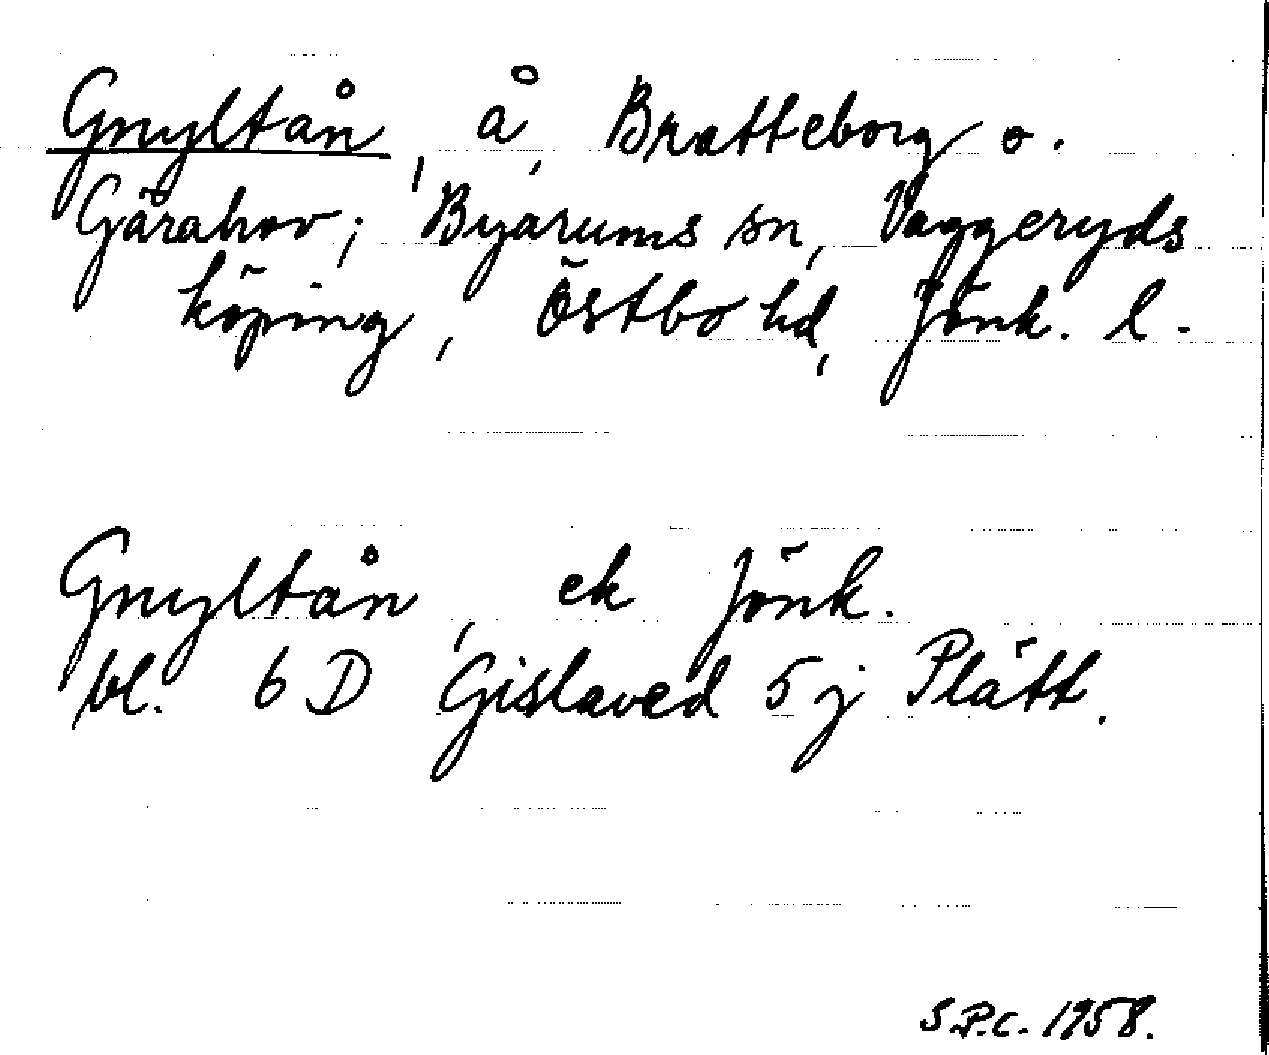 Gnyltån, å, Bratteborg o.
Gärahov; Byarums sn, Vaggeryds
köping, Östbo hd, Jönk. l.
Gnyltån, ek Jönk.
bl. 6 D Gislaved 5 j Plätt.
S.P.C. 1958.